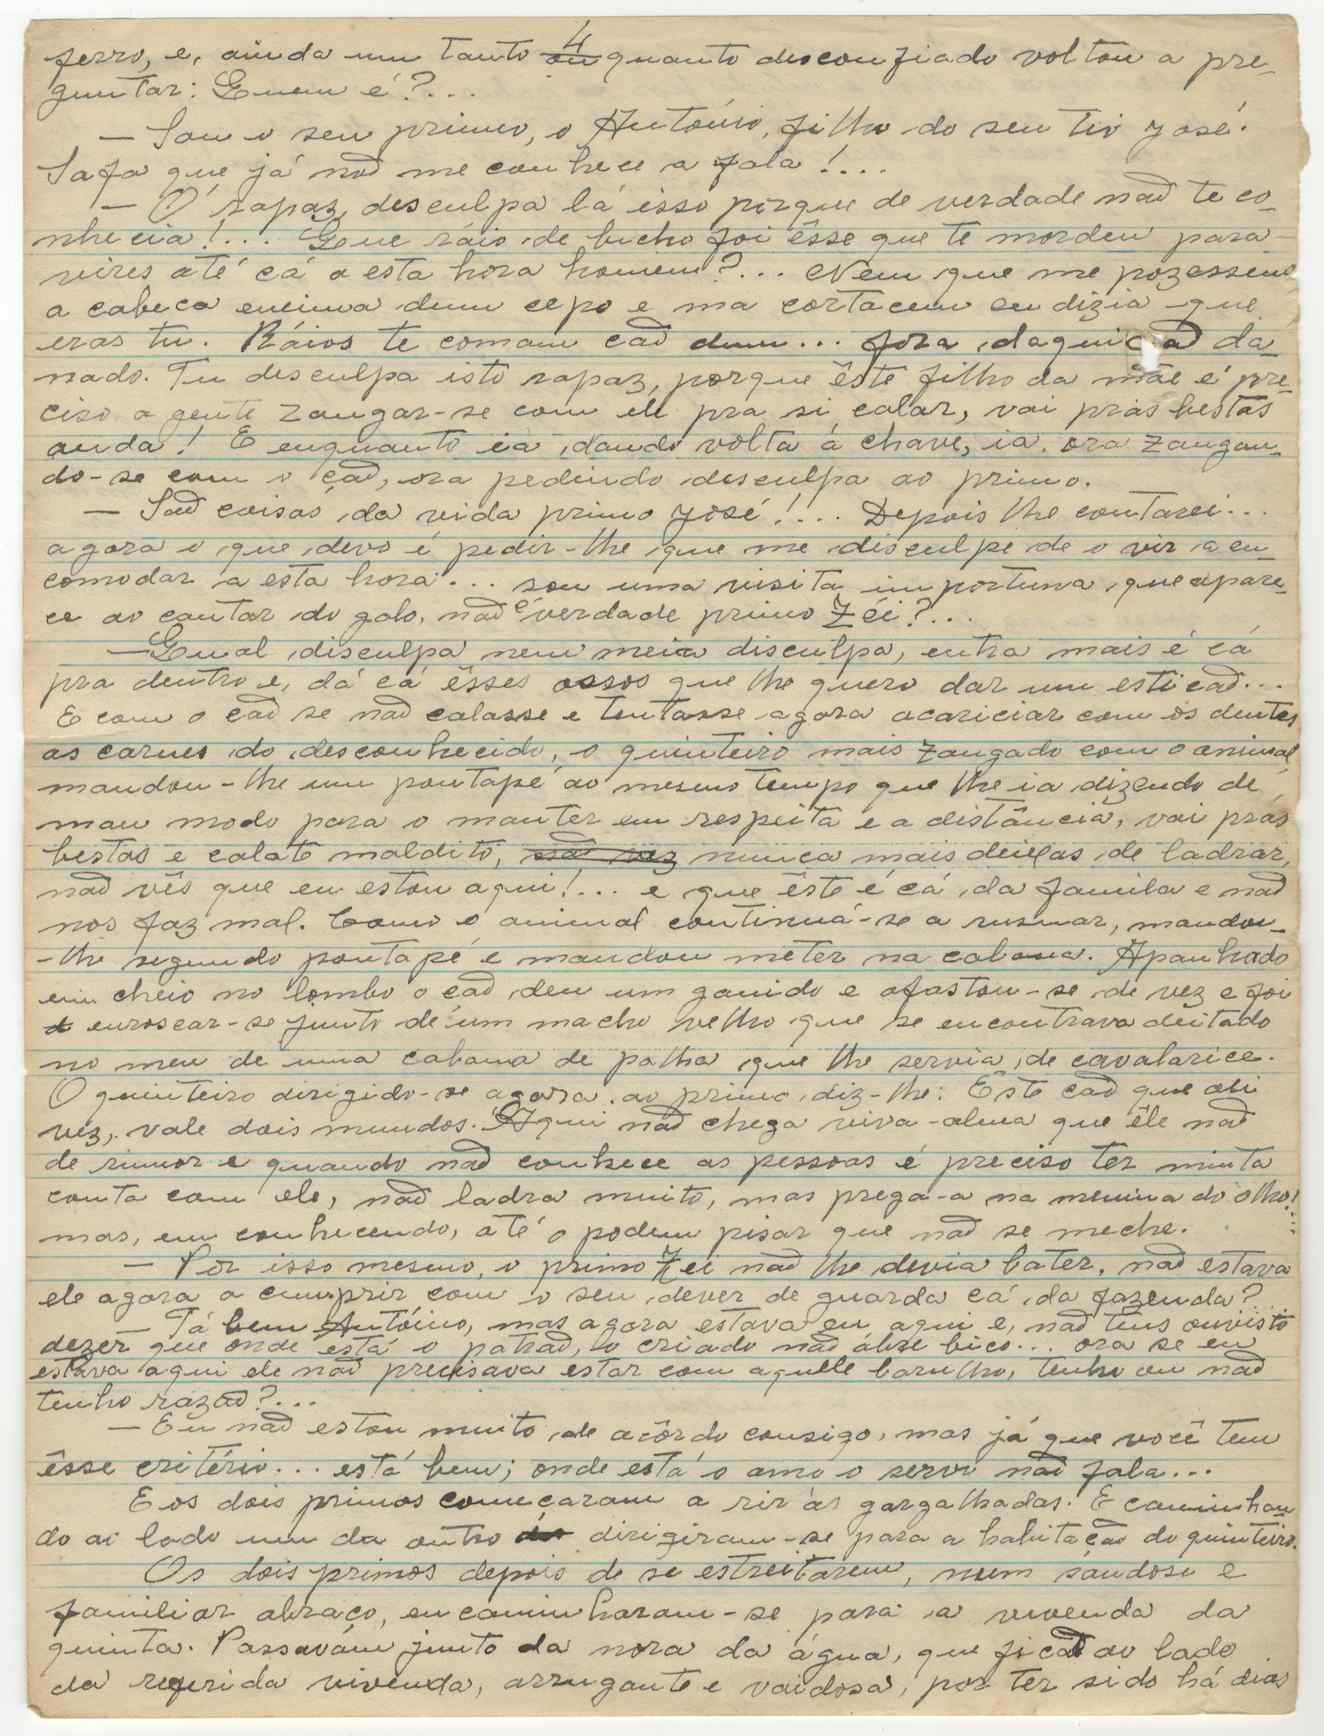 4
ferro, e, ainda um tanto ou quanto desconfiado voltou a pre-
guntar: Quem é?...
— Sou o seu primo, o António, filho do seu tio José.
Safa que já naõ me conhece a fala!...
— Ó rapaz, desculpa lá isso porque de verdade naõ te co-
nhecia!... Que ráio de bicho foi êsse que te mordeu para
vires até cá a esta hora homem?... Nem que me pozessem
a cabeca encima dum cepo e ma cortacem eu dizia que
eras tu. Ráios te comam caõ dum... fora daqui caõ da-
nado. Tu desculpa isto rapaz, porque êste filho da mãe é pre-
ciso a gente zangar-se com ele pra si calar, vai prás bestas
anda! E enquanto ia dando volta á chave, ia, ora zangan-
do-se com o caõ, ora pedindo desculpa ao primo.
— Saõ coisas da vida primo José!... Depois lhe contarei...
agora o que devo é pedir-lhe que me disculpe de o vir a en-
comodar a esta hora... sou uma visita importuna que apare-
ce ao cantar do galo, naõ é verdade primo Zéi?...
— Qual disculpa nem meia disculpa, entra mais é cá
pra dentro e, dá cá êsses ossos que lhe quero dar um esticaõ...
E com o caõ se naõ calasse e tentasse agora acariciar com os dentes
as carnes do desconhecido, o quinteiro mais zangado com o animal
mandou-lhe um pontapé ao mesmo tempo que lhe ia dizendo de
mau modo para o manter em respeita e a distância, vai prás
bestas e calate maldito, nunca mais deixas de ladrar,
naõ vês que eu estou aqui!... e que êste é cá da famila e naõ
nos faz mal. Como o animal continuá-se a rusnar, mandou-
-lhe segundo pontapé e mandou meter na cabana. Apanhado
em cheio no lombo o caõ deu um ganido e afastou-se de vez e foi
enroscar-se junto de um macho velho que se encontrava deitado
no meu de uma cabana de palha que lhe servia de cavalarice.
O quinteiro dirigido-se agora ao primo diz-lhe: Êste caõ que ali
vêz, vale dois mundos. Aqui naõ chega viva-alma que êle naõ
de rumor e quando naõ conhece as pessoas é preciso ter minta
conta com ele, naõ ladra muito, mas prega-a na menina do olho!...
mas, em conhecendo, até o podem pisar que naõ se meche.
— Pôr isso mesmo, o primo Zei naõ lhe devia bater, naõ estava
ele agora a cumprir com o seu dever de guarda cá da fazenda?
— Tá bem António, mas agora estava eu aqui e, naõ tens ouvisto
dezer que onde está o patraõ, o criado naõ ábre bico... ora se eu
estava aqui ele naõ precisava estar com aquele barulho, tenho ou naõ
tenho razaõ?...
— Eu naõ estou muito de acôrdo consigo, mas já que você tem
êsse critério... está bem; onde está o amo o servo naõ fala...
E os dois primos começaram a rir ás gargalhadas. E caminhan-
do ao lado um da outro dirigiram-se para a habitaçaõ do quinteiro.
Os dois primos depois de se estreitarem, num saudoso e
familiar abraço, encaminharam-se para a vivenda da
quinta. Passavám junto da nora da água, que fica ao lado
da requrida vivenda, arrugante e vaidosa, por ter sido há dias